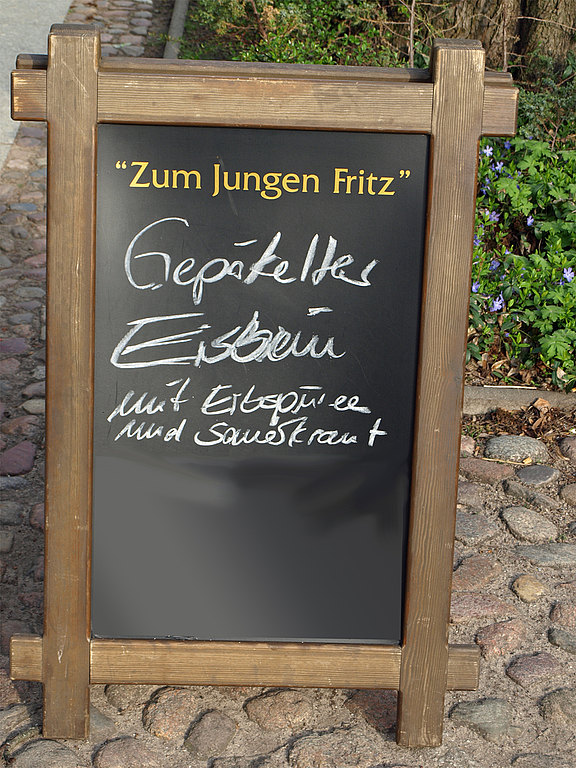 “Zum Jungen Fritz”
Gepökelter
Eisbein
mit Erbspüree
und Sauerkraut